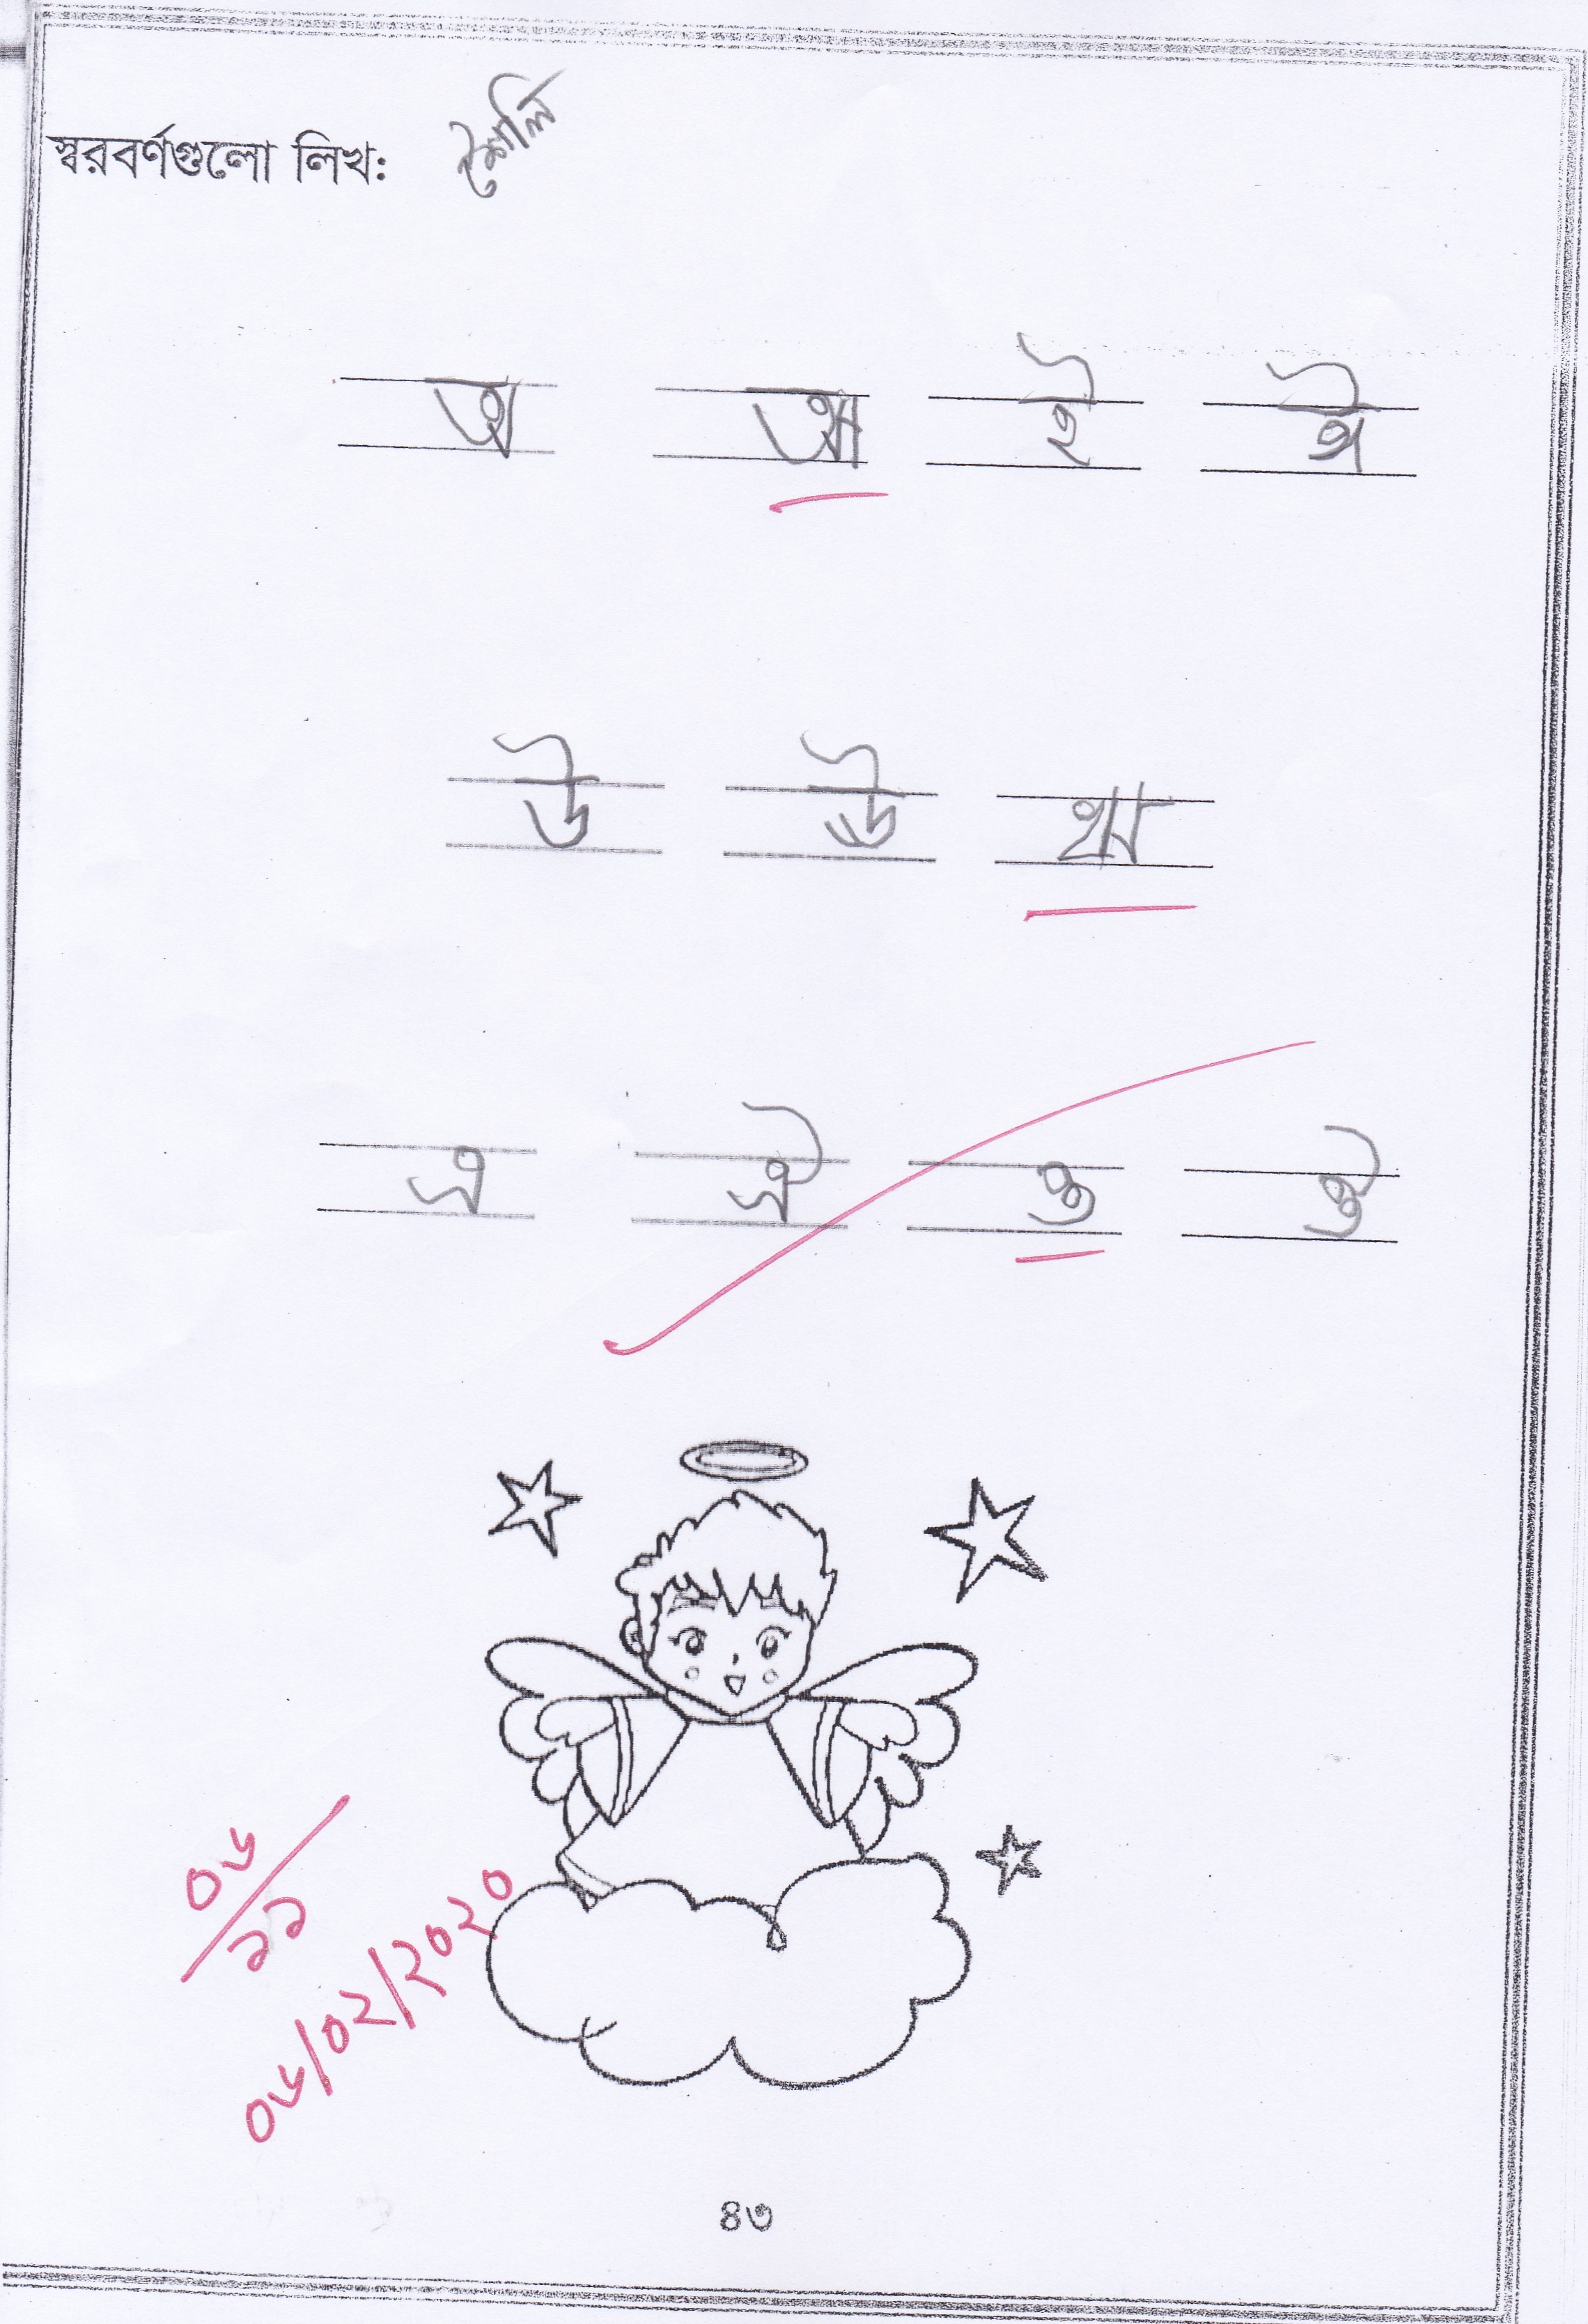 স্বরবর্ণগুলো লিখ:
অ আ ই ঈ
উ ঊ ঋ
এ ঐ ও ঔ
০৮
১১
০৮/০২/২০২০
৪৩